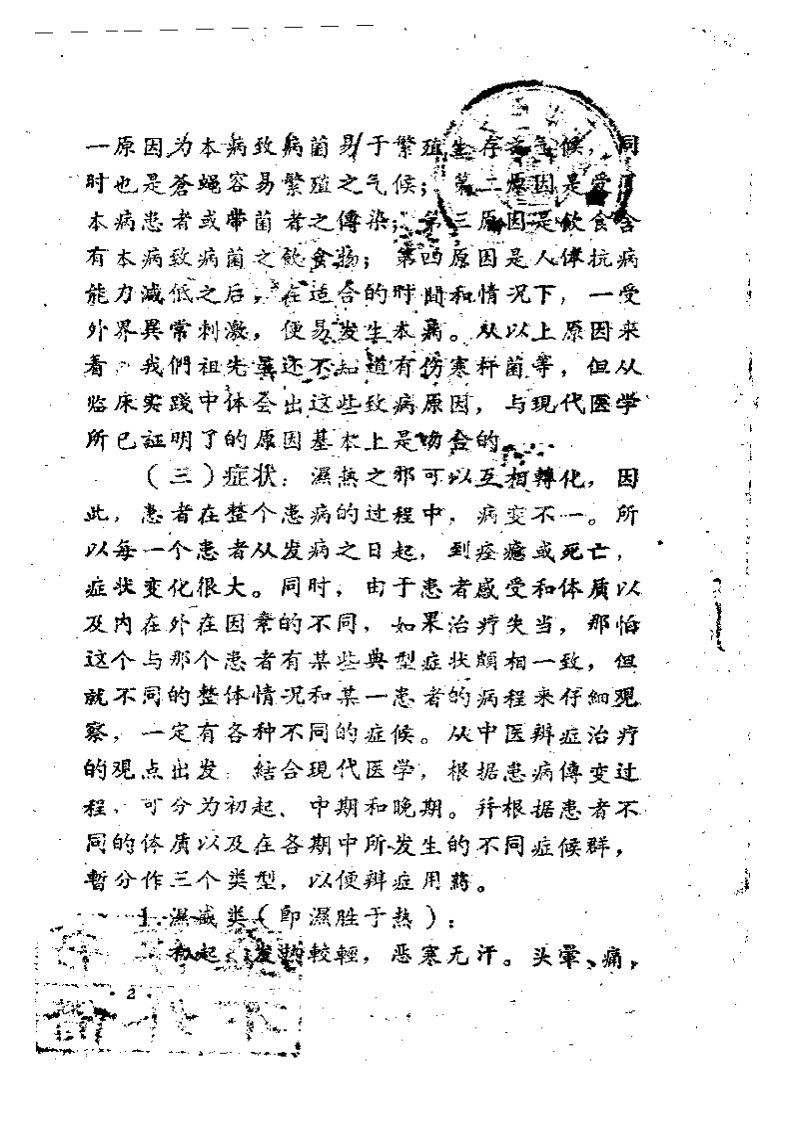 一原因为本病致病菌易于繁殖生存之气候，同
时也是蒼蝇容易繁殖之气候；第二原因是受
本病患者或带菌者之傳染；第三原因是飲食含
有本病致病菌之飲食物；第四原因是人体抗病
能力減低之后，在适合的时間和情况下，一受
外界異常刺激，便易发生本病。从以上原因来
看，我們祖先虽还不知道有伤寒杆菌等，但从
临床实踐中体会出这些致病原因，与現代医学
所已証明了的原因基本上是吻合的
（三）症状：濕热之邪可以互相轉化，因
此，患者在整个患病的过程中，病变不一。所
以每一个患者从发病之日起，到痊癒或死亡，
症状变化很大。同时，由于患者感受和体质以
及内在外在因素的不同，如果治疗失当，那怕
这个与那个患者有某些典型症状頗相一致，但
就不同的整体情况和某一患者的病程来仔細观
察，一定有各种不同的症候。从中医辨症治疗
的观点出发，結合現代医学，根据患病傳变过
程，可分为初起、中期和晚期。幷根据患者不
同的体质以及在各期中所发生的不同症候群，
暫分作三个类型，以便辨症用葯。
1.濕盛类（即濕胜于热）：
初起：发热較輕，恶寒无汗。头暈、痛，
·2·